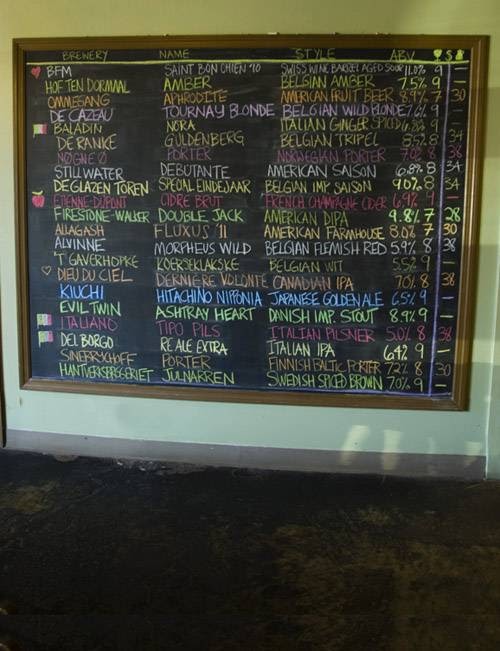 BREWERY NAME STYLE ABV $
BFM SAINT BON CHIEN '10 SWISS WINE BARREL AGED SOUR 11.0% 9 —
HOF TEN DORMAAL AMBER BELGIAN AMBER 7.5% 9 —
OMMEGANG APHRODITE AMERICAN FRUIT BEER 8.9% 7 30
DE CAZEAU TOURNAY BLONDE BELGIAN WILD BLONDE 7.6% 9 —
BALADIN NORA ITALIAN GINGER SPICED 6.8% 9 —
DE RANKE GULDENBERG BELGIAN TRIPEL 8.5% 8 34
NØGNE Ø PORTER NORWEGIAN PORTER 7.0% 8 38
STILLWATER DEBUTANTE AMERICAN SAISON 6.8% 8 34
DE GLAZEN TOREN SPECIAL EINDEJAAR BELGIAN IMP. SAISON 9.0% 8 34
ETIENNE DUPONT CIDRE BRUT FRENCH CHAMPAGNE CIDER 9 —
FIRESTONE-WALKER DOUBLE JACK AMERICAN DIPA 9.8% 7 28
ALLAGASH FLUXUS '11 AMERICAN FARMHOUSE 8.0% 7 30
ALVINNE MORPHEUS WILD BELGIAN FLEMISH RED 5.9% 8 38
'T GAVERHOPKE KOERSEKLAKSKE BELGIAN WIT 5.5% 9 —
DIEU DU CIEL DERNIERE VOLONTE CANADIAN IPA 7.0% 8 38
KIUCHI HITACHINO NIPPONIA JAPANESE GOLDEN ALE 6.5% 9 —
EVIL TWIN ASHTRAY HEART DANISH IMP. STOUT 8.9% 9 —
ITALIANO TIPO PILS ITALIAN PILSNER 5.0% 8 38
DEL BORGO RE ALE EXTRA ITALIAN IPA 6.4% 9 —
SINEBRYCHOFF PORTER FINNISH BALTIC PORTER 7.2% 8 30
HANTVERKSBRYGERIET JULNARREN SWEDISH SPICED BROWN 7.0% 9 —